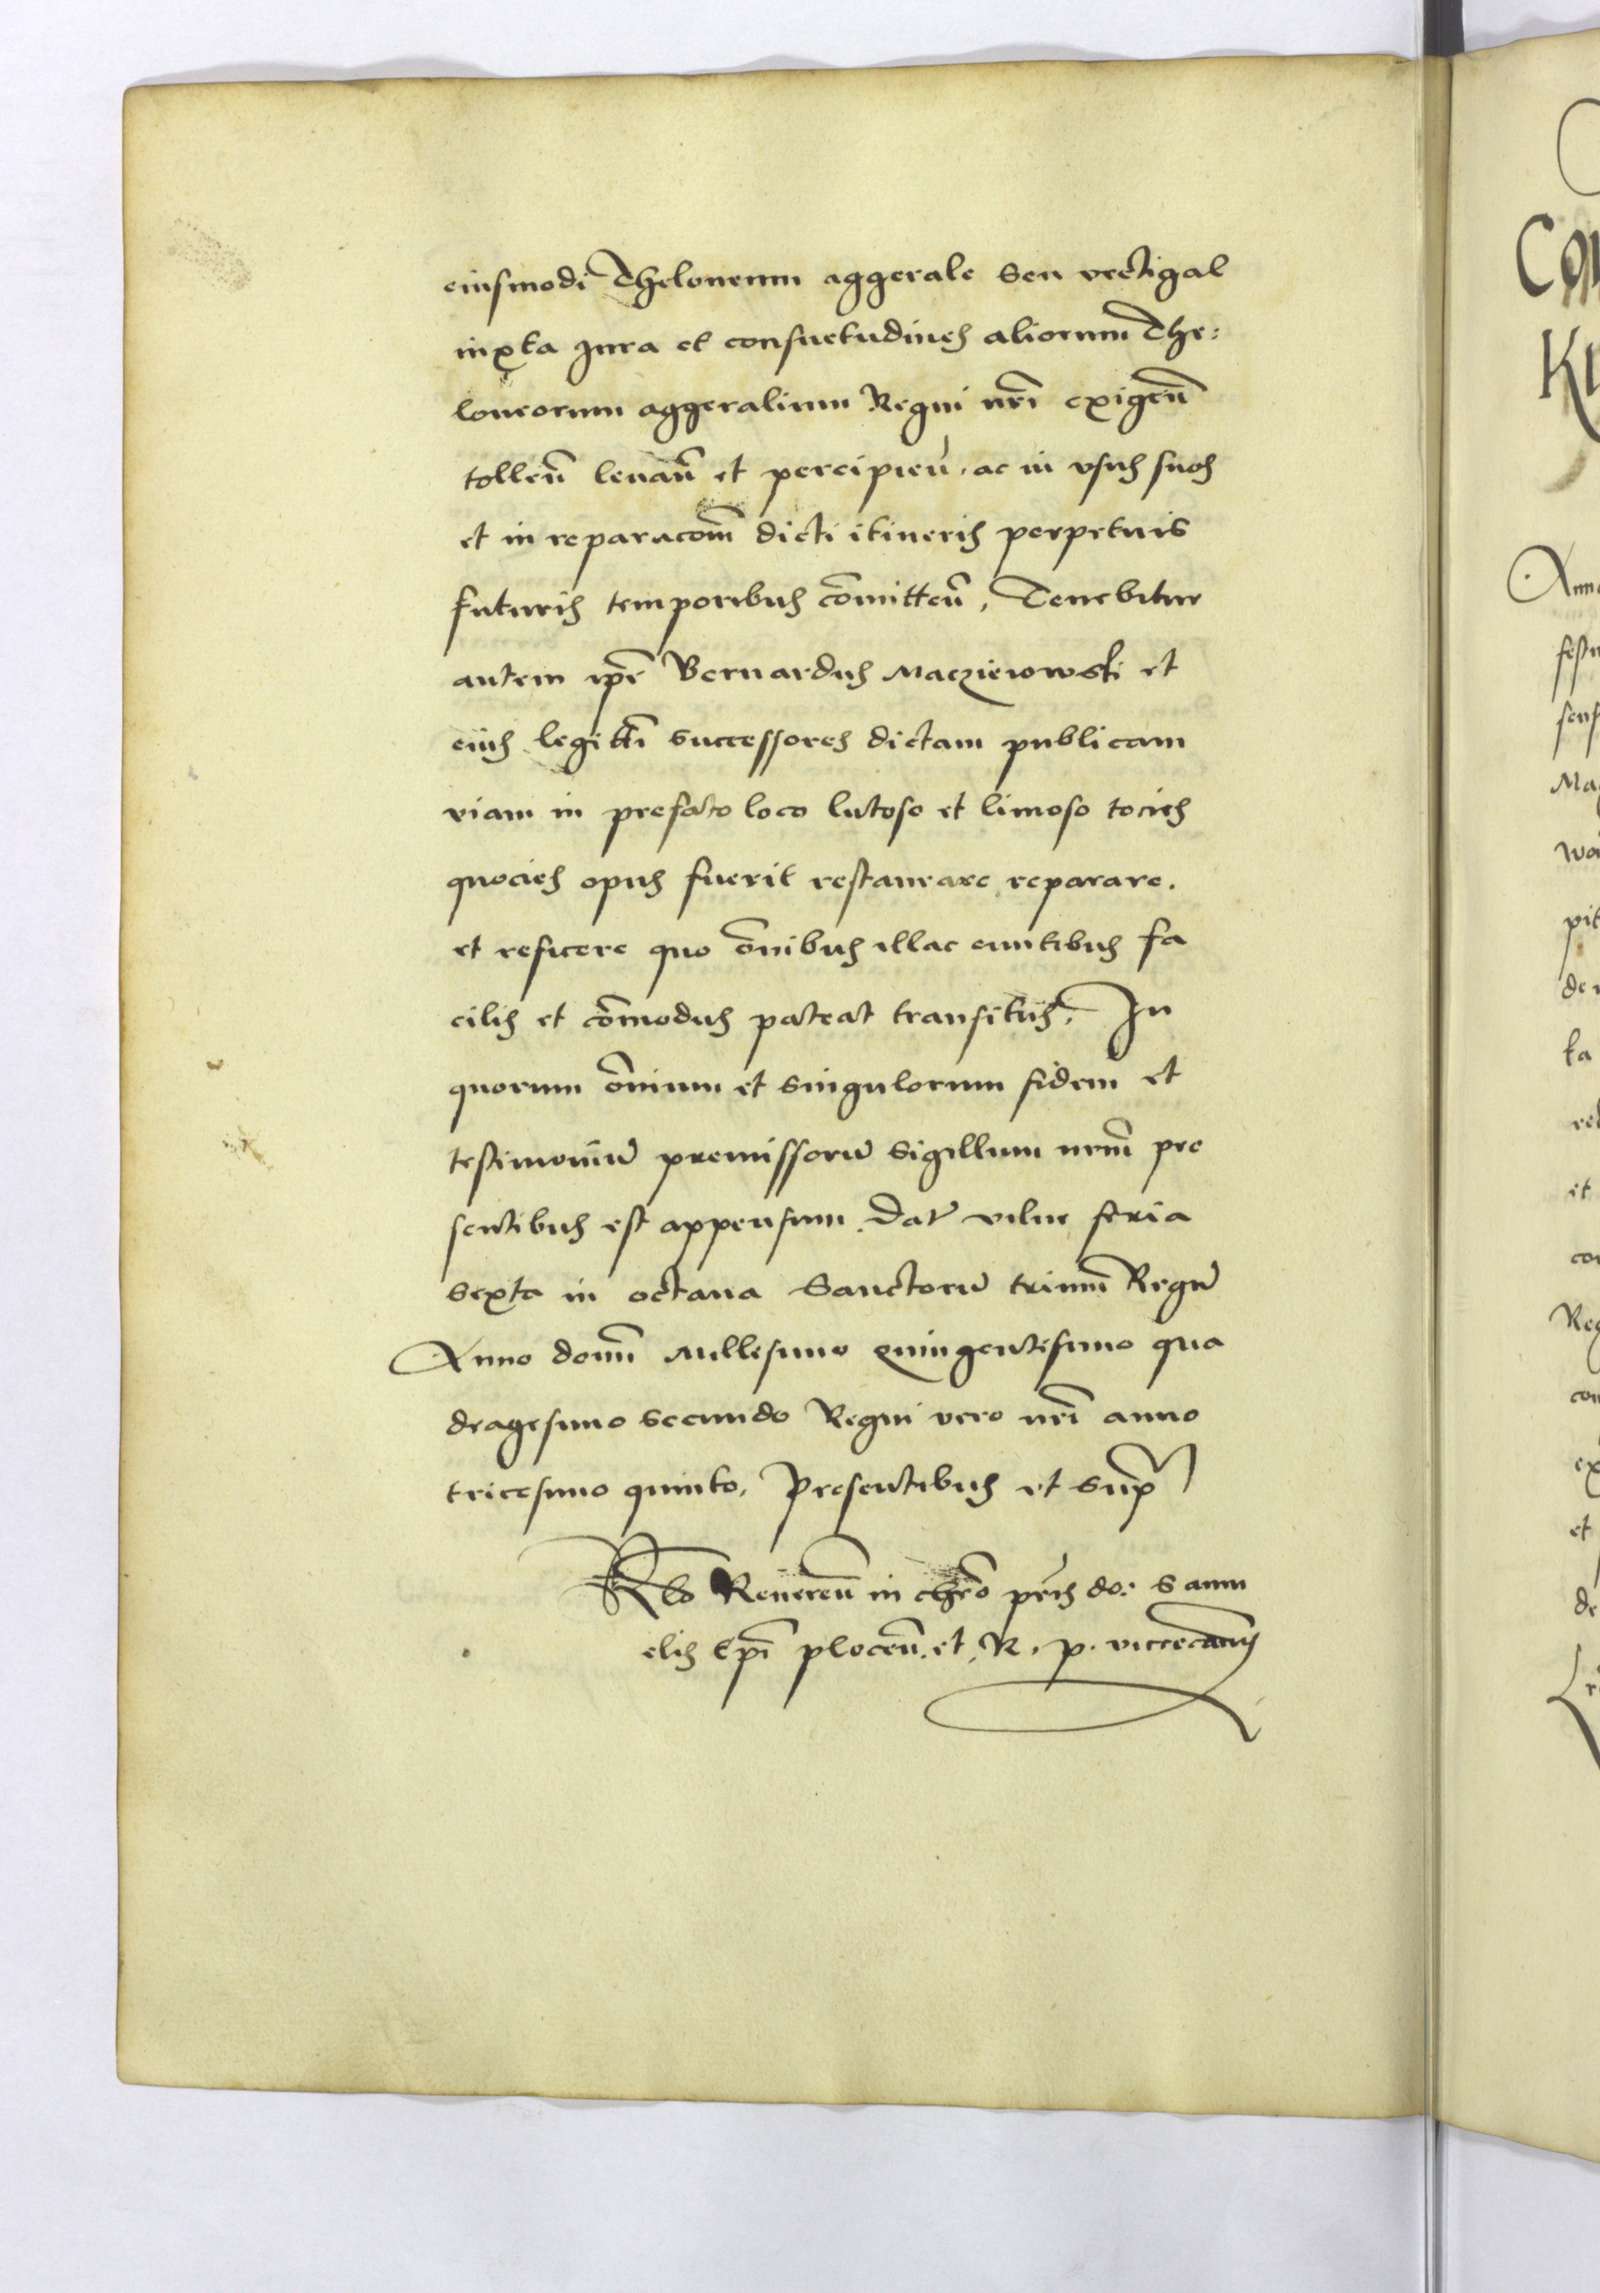 eiusmodi Theloneum aggerale seu vectigal
iuxta Iura et consuetudines aliorum The:
loneorum aggeralium Regni nr̄i exigeñ
tolleñ leuañ et percipieñ. ac in vsus suos
et in reparacōm dicti itineris perpetuis
futuris temporibus cōmitteñ. Tenebitur
autem ip̄e Bernardus Maczieiowski et
eius legitt̄i successores dictam publicam
viam in prefato loco lutoso et limoso tocies
quocies opus fuerit restaurare reparare.
et reficere quo ōnibus illac euntibus fa
cilis et cōmodus pateat transitus. In
quorum ōnium et singulorum fidem et
testimoniū premissorū sigillum nrm̄ pre
sentibus est appensum. Dat̄ vilne feria
sexta in octaua Sanctorū trium Regū
Anno domī Millesimo quingentesimo qua
dragesimo secundo Regni vero nr̄i anno
tricesimo quinto. Presentibus et sup̄
Rlō Reuereñ in chrō pr̄is do: Samu
elis Ep̄i ploceñ. et. R. p. vicecanc̄
Con
Ki
Anno